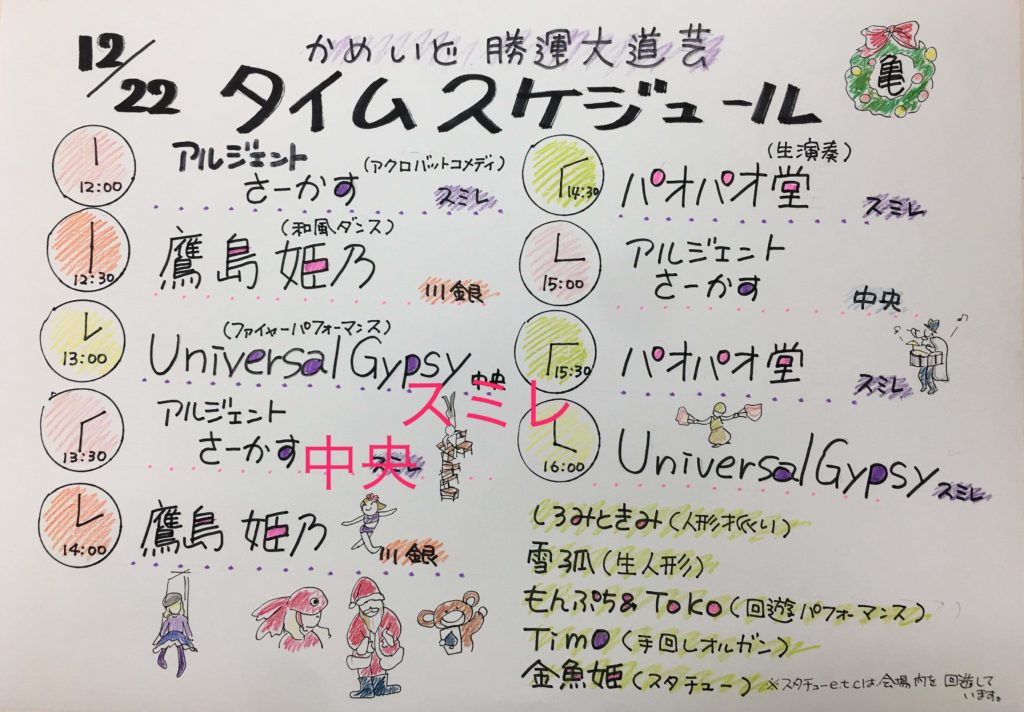 12/22
かめいど 勝運大道芸
タイムスケジュール
亀
12:00
アルジェント
さーかす
(アクロバットコメディ)
スミレ
12:30
(和風ダンス)
鷹島 姫乃
川銀
13:00
(ファイヤーパフォーマンス)
Universal Gypsy
中央
スミレ
13:30
アルジェント
さーかす
スミレ
中央
14:00
鷹島 姫乃
川銀
14:30
(生演奏)
パオパオ堂
スミレ
15:00
アルジェント
さーかす
中央
15:30
パオパオ堂
スミレ
16:00
Universal Gypsy
スミレ
しろみときみ(人形振り)
雪孤(生人形)
もんぷち&Toko(回遊パフォーマンス)
Timo(手回しオルガン)
金魚姫(スタチュー)
※スタチューe.t.cは会場内を回遊して
います。